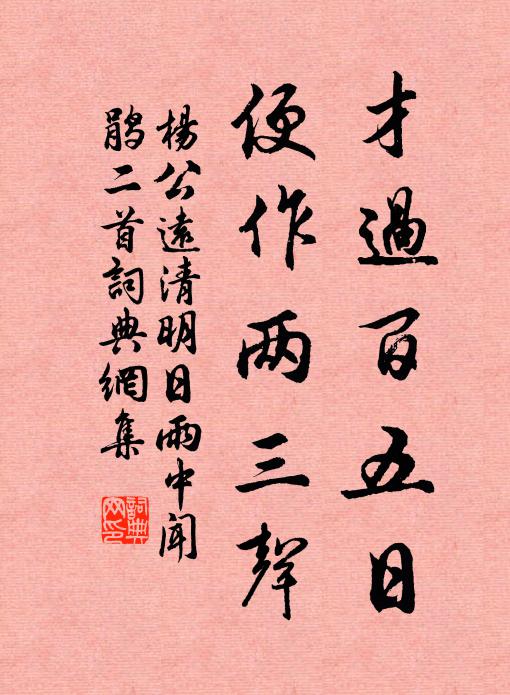 才過百五日
便作两三聲
楊公遠清明日雨中聞
鹃二首詞典網集
詞典
网印